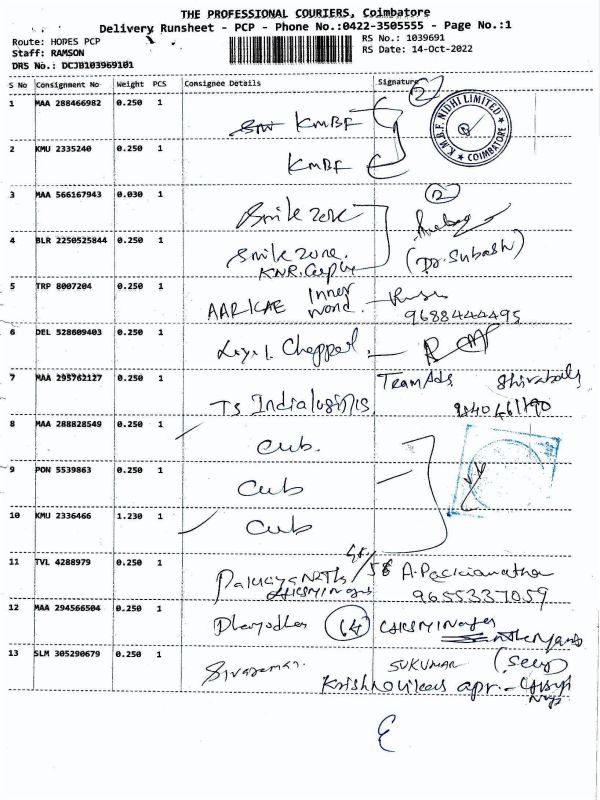 THE PROFESSIONAL COURIERS, Coimbatore
Delivery Runsheet - PCP - Phone No.:0422-3505555 - Page No.:1
Route: HOPES PCP
RS No.: 1039691
Staff: RAMSON
RS Date: 14-Oct-2022
DRS No.: DCJB103969101
S No Consignment No Weight PCS Consignee Details Signature
2
1 MAA 288466982 0.250 1 KMBF
K.M.B.F. NIDHI LIMITED
COIMBATORE
2 KMU 2335240 0.250 1 KMBF
3 MAA 566167943 0.030 1 Smile zone
2
4 BLR 2250525844 0.250 1 Smile zone.
KNR. (Dr. Subash)
5 TRP 8007204 0.250 1 AARICAE Inner
9688444495
6 DEL 528609403 0.250 1 Chappel
7 MAA 295762127 0.250 1 TS Indialogistis Team Ads
8 MAA 288828549 0.250 1 Cub.
9 PON 5539863 0.250 1 Cub
10 KMU 2336466 1.230 1 Cub
11 TVL 4288979 0.250 1 58 A. Packianathan
9655337059
12 MAA 294566504 0.250 1 (14)
13 SLM 305290679 0.250 1 Sivaraman. SUKUMAR
apr.